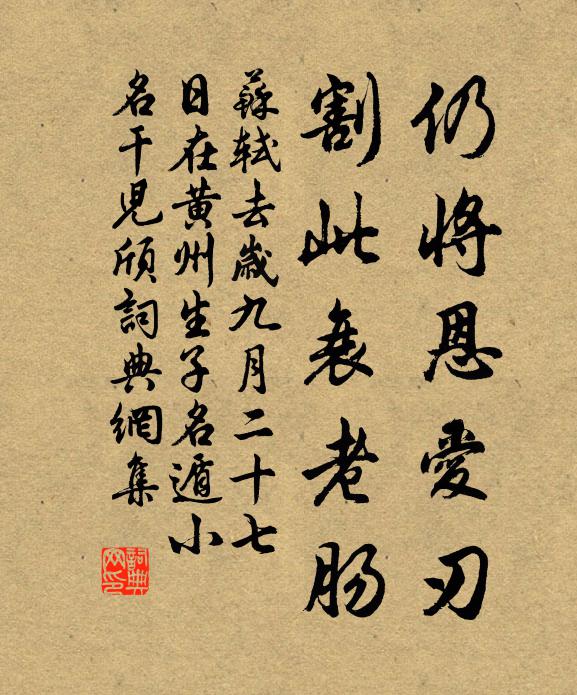 仍將恩愛刃
割此衰老腸
蘇軾去歲九月二十七
日在黃州生子名遁小
名干兒頎詞典網集
詞典网印